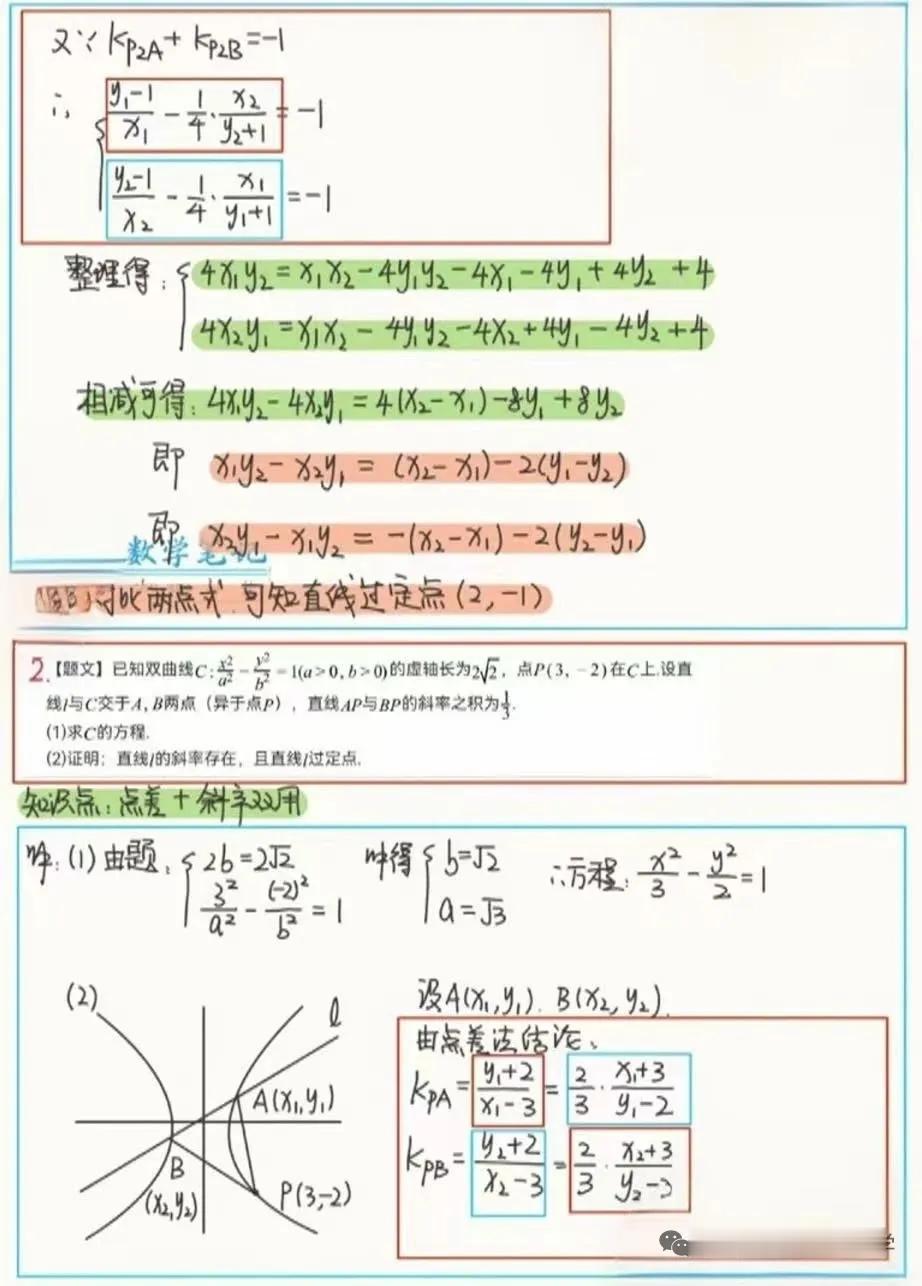 又∵ k_{P₂A} + k_{P₂B} = -1
∴ { \frac{y₁-1}{x₁} - \frac{1}{4}·\frac{x₂}{y₂+1} = -1
\frac{y₂-1}{x₂} - \frac{1}{4}·\frac{x₁}{y₁+1} = -1
整理得: { 4x₁y₂ = x₁x₂ - 4y₁y₂ - 4x₁ - 4y₁ + 4y₂ + 4
4x₂y₁ = x₁x₂ - 4y₁y₂ - 4x₂ + 4y₁ - 4y₂ + 4
相减可得: 4x₁y₂ - 4x₂y₁ = 4(x₂ - x₁) - 8y₁ + 8y₂
即 x₁y₂ - x₂y₁ = (x₂ - x₁) - 2(y₁ - y₂)
即 x₂y₁ - x₁y₂ = -(x₂ - x₁) - 2(y₂ - y₁)
数学笔记
对比两点式 可知直线过定点(2,-1)
2.【题文】已知双曲线C: \frac{x²}{a²} - \frac{y²}{b²} = 1(a>0, b>0)的虚轴长为2√2, 点P(3, -2)在C上.设直
线l与C交于A, B两点（异于点P）, 直线AP与BP的斜率之积为\frac{1}{3}.
(1)求C的方程.
(2)证明: 直线l的斜率存在, 且直线l过定点.
知识点: 点差 + 斜率双用
解: (1) 由题: { 2b = 2√2 解得 { b = √2 ∴方程: \frac{x²}{3} - \frac{y²}{2} = 1
\frac{3²}{a²} - \frac{(-2)²}{b²} = 1 a = √3
(2)
l
A(x₁,y₁)
B
(x₂,y₂)
P(3,-2)
设A(x₁,y₁). B(x₂,y₂).
由点差法结论:
k_{PA} = \frac{y₁+2}{x₁-3} = \frac{2}{3}·\frac{x₁+3}{y₁-2}
k_{PB} = \frac{y₂+2}{x₂-3} = \frac{2}{3}·\frac{x₂+3}{y₂-3}
学